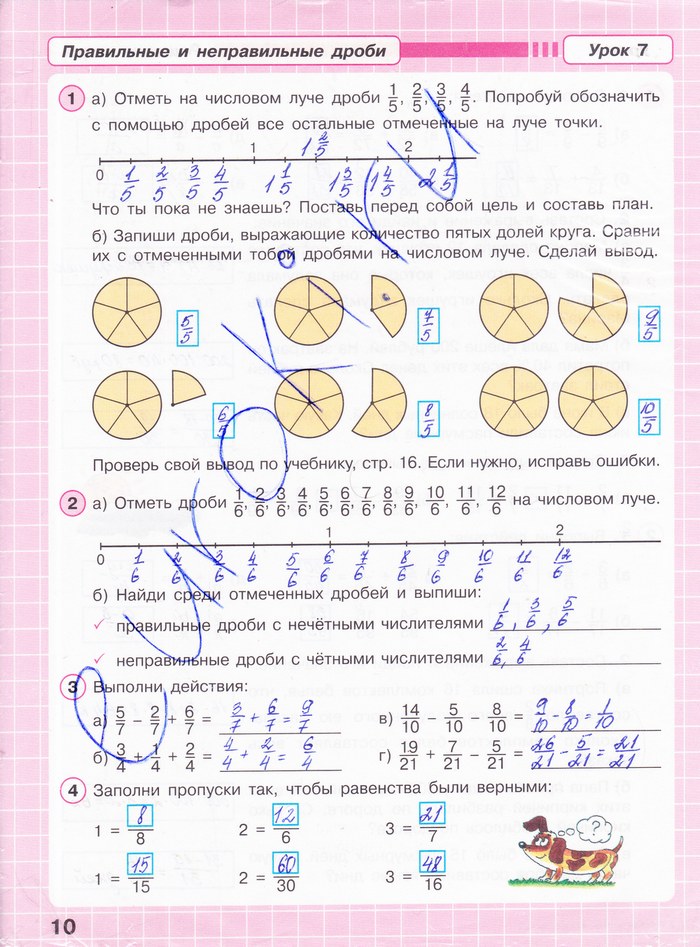 Правильные и неправильные дроби Урок 7
1 а) Отметь на числовом луче дроби 1/5, 2/5, 3/5, 4/5. Попробуй обозначить
с помощью дробей все остальные отмеченные на луче точки.
1 1 2/5 2
0 1/5 2/5 3/5 4/5 1 1/5 1 3/5 1 4/5 2 1/5
Что ты пока не знаешь? Поставь перед собой цель и составь план.
б) Запиши дроби, выражающие количество пятых долей круга. Сравни
их с отмеченными тобой дробями на числовом луче. Сделай вывод.
5/5 7/5 9/5
6/5 8/5 10/5
Проверь свой вывод по учебнику, стр. 16. Если нужно, исправь ошибки.
2 а) Отметь дроби 1/6, 2/6, 3/6, 4/6, 5/6, 6/6, 7/6, 8/6, 9/6, 10/6, 11/6, 12/6 на числовом луче.
1 2
0 1/6 2/6 3/6 4/6 5/6 6/6 7/6 8/6 9/6 10/6 11/6 12/6
б) Найди среди отмеченных дробей и выпиши:
✓ правильные дроби с нечётными числителями 1/6, 3/6, 5/6
✓ неправильные дроби с чётными числителями 2/6, 4/6
3 Выполни действия:
а) 5/7 − 2/7 + 6/7 = 3/7 + 6/7 = 9/7 в) 14/10 − 5/10 − 8/10 = 9/10 - 8/10 = 1/10
б) 3/4 + 1/4 + 2/4 = 4/4 + 2/4 = 6/4 г) 19/21 + 7/21 − 5/21 = 26/21 - 5/21 = 21/21
4 Заполни пропуски так, чтобы равенства были верными:
1 = 8/8 2 = 12/6 3 = 21/7
1 = 15/15 2 = 60/30 3 = 48/16
?
10